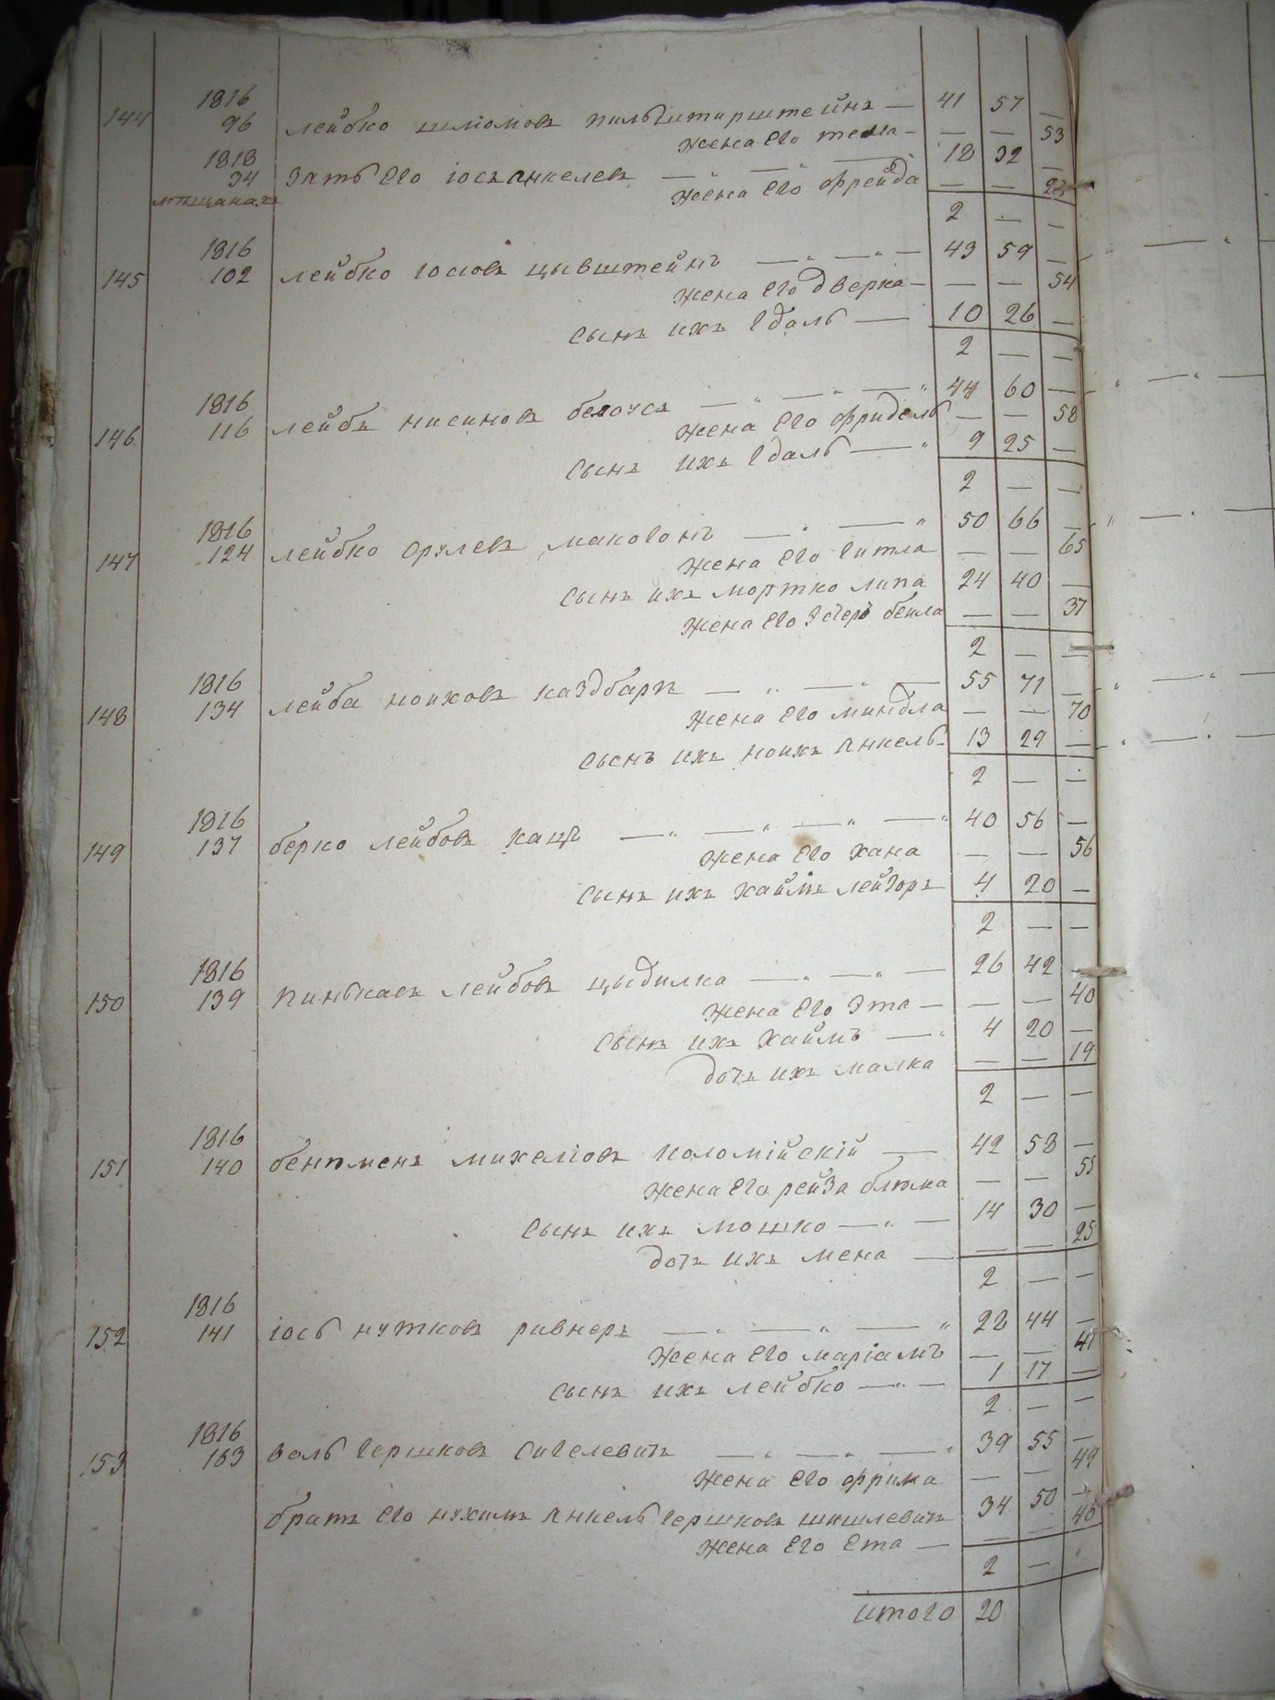 1816
144 96 лейбко шліомовъ пильштирштейнъ — 41 57 —
жена его темa — — — 53
1818 18 32 —
34 зять его іосъ анкелевъ
жена его фрейда — — 22
мѣщанах
2 — —
1816
145 102 лейбко іосіовъ цывштейнъ 43 59 —
жена его дверка — — — 54
сынъ ихъ гдаль — 10 26 —
2 — —
1816
146 116 лейбъ нисиновъ белоусъ 44 60 —
жена его фридель — — 58
сынъ ихъ гдаль 9 25 —
2 — —
1816
147 124 лейбко срулевъ маковонъ 50 66 —
жена его гитла — — 65
сынъ ихъ мортко липа 24 40 —
жена его эстеръ бейла — — 37
2 — —
1816
148 134 лейба ноиховъ каздбарп 55 71 —
жена его миндла — — 70
сынъ ихъ ноихъ анкель 13 29 —
2 — —
1816
149 137 берко лейбовъ кацъ 40 56 —
жена его хана — — 56
сынъ ихъ хаймъ лейзоръ 4 20 —
2 — —
1816
150 139 пинькасъ лейбовъ цыдилка 26 42 —
жена его эта — — — 40
сынъ ихъ хаймъ 4 20 —
дочъ ихъ малка — — 19
2 — —
1816
151 140 беняменъ михеліовъ коломійскій — 42 58 —
жена его рейза блюма — — 55
сынъ ихъ мошко 14 30 —
дочъ ихъ мена — — — 25
2 — —
1816
152 141 іось нутковъ ривнеръ 28 44 —
жена его маріамъ — — 41
сынъ ихъ лейбко 1 17 —
2 — —
1816
153 163 воль гершковъ сигелевичъ 39 55 —
жена его фрима — — 49
братъ его нухимъ анкель гершковъ шишлевичъ 34 50 —
жена его ета — — — 46
2 —
итого 20